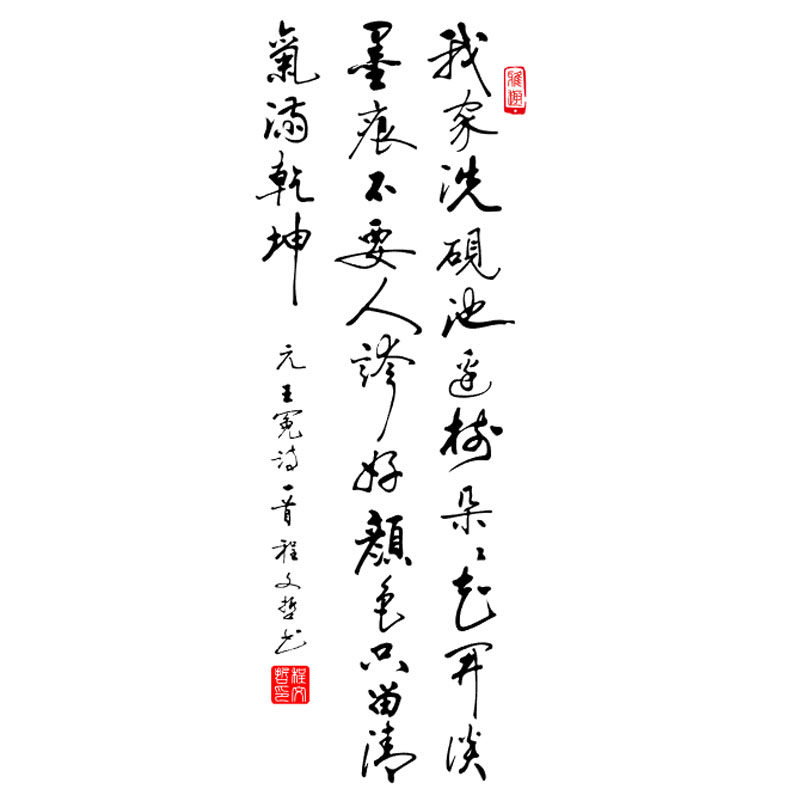 雅趣
我家洗硯池邊樹朵〻花開淡
墨痕不要人誇好顏色只留清
氣滿乾坤
元王冕詩一首程文哲书
程文哲印